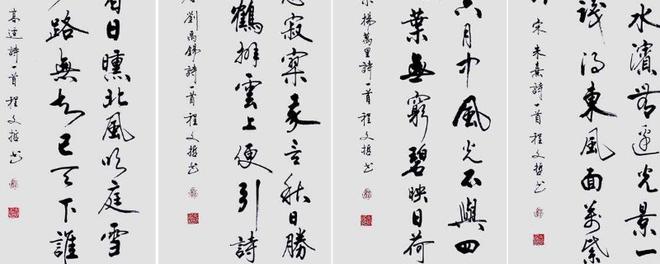 水濱無邊光景一
識得東風面萬紫
宋朱熹詩一首程文哲书
六月中風光不與四
葉無窮碧映日荷
宋楊萬里詩一首程文哲书
悲寂寥我言秋日勝
鶴排雲上便引詩
劉禹錫詩一首程文哲书
白日曛北風吹雁雪
路無知己天下誰
高適詩一首程文哲书